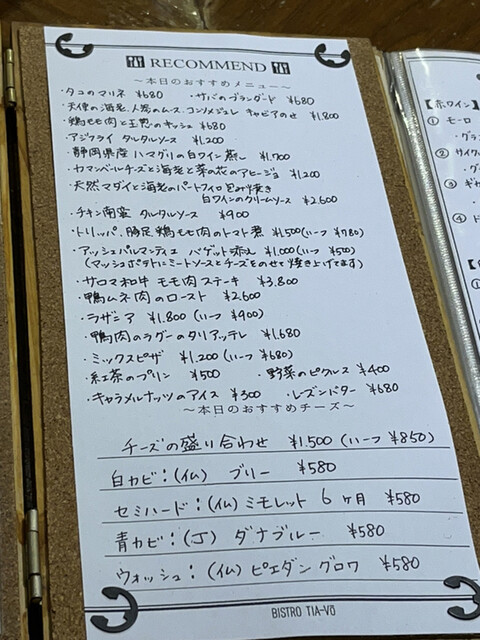 RECOMMEND
～本日のおすすめメニュー～
・タコのマリネ ¥680 ・サバのブランダード ¥680
・天使の海老、人参のムース、コンソメジュレ キャビアのせ ¥1.800
・鶏モモ肉と玉葱のキッシュ ¥680
・アジフライ タルタルソース ¥1.200
・静岡県産 ハマグリの白ワイン蒸し ¥1.700
・カマンベールチーズと海老と菜の花のアヒージョ ¥1.200
・天然マダイと海老のパートフィロ包み焼き
白ワインのクリームソース ¥2.600
・チキン南蛮 タルタルソース ¥900
・トリッパ、豚足、鴨モモ肉のトマト煮 ¥1.500 (ハーフ ¥780)
・アッシュパルマンティエ バゲット添え ¥1.000 (ハーフ ¥500)
(マッシュポテトにミートソースとチーズをのせて焼き上げてます)
・サロマ和牛 モモ肉ステーキ ¥3.800
・鴨ムネ肉のロースト ¥2.600
・ラザニア ¥1.800 (ハーフ ¥900)
・鴨肉のラグーのタリアッテレ ¥1.680
・ミックスピザ ¥1.200 (ハーフ ¥680)
・紅茶のプリン ¥500 ・野菜のピクルス ¥400
・キャラメルナッツのアイス ¥300 ・レーズンバター ¥680
～本日のおすすめチーズ～
チーズの盛り合わせ ¥1.500 (ハーフ ¥850)
白カビ：(仏) ブリー ¥580
セミハード：(仏) ミモレット 6ヶ月 ¥580
青カビ：(丁) ダナブルー ¥580
ウォッシュ：(仏) ピエダングロワ ¥580
BISTRO TIA-VÖ
【ホワイン
① モーロ
・グラ
② サイクル
・グ
③ ギャ
④ ド